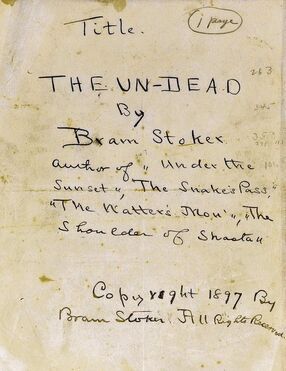 1 page
Title.
THE UN-DEAD
By
Bram Stoker
author of "Under the
Sunset", "The Snake's Pass",
"The Watter's Mou'", "The
Shoulder of Shasta"
Copyright 1897 By
Bram Stoker. All Rights Reserved.
263
345
353